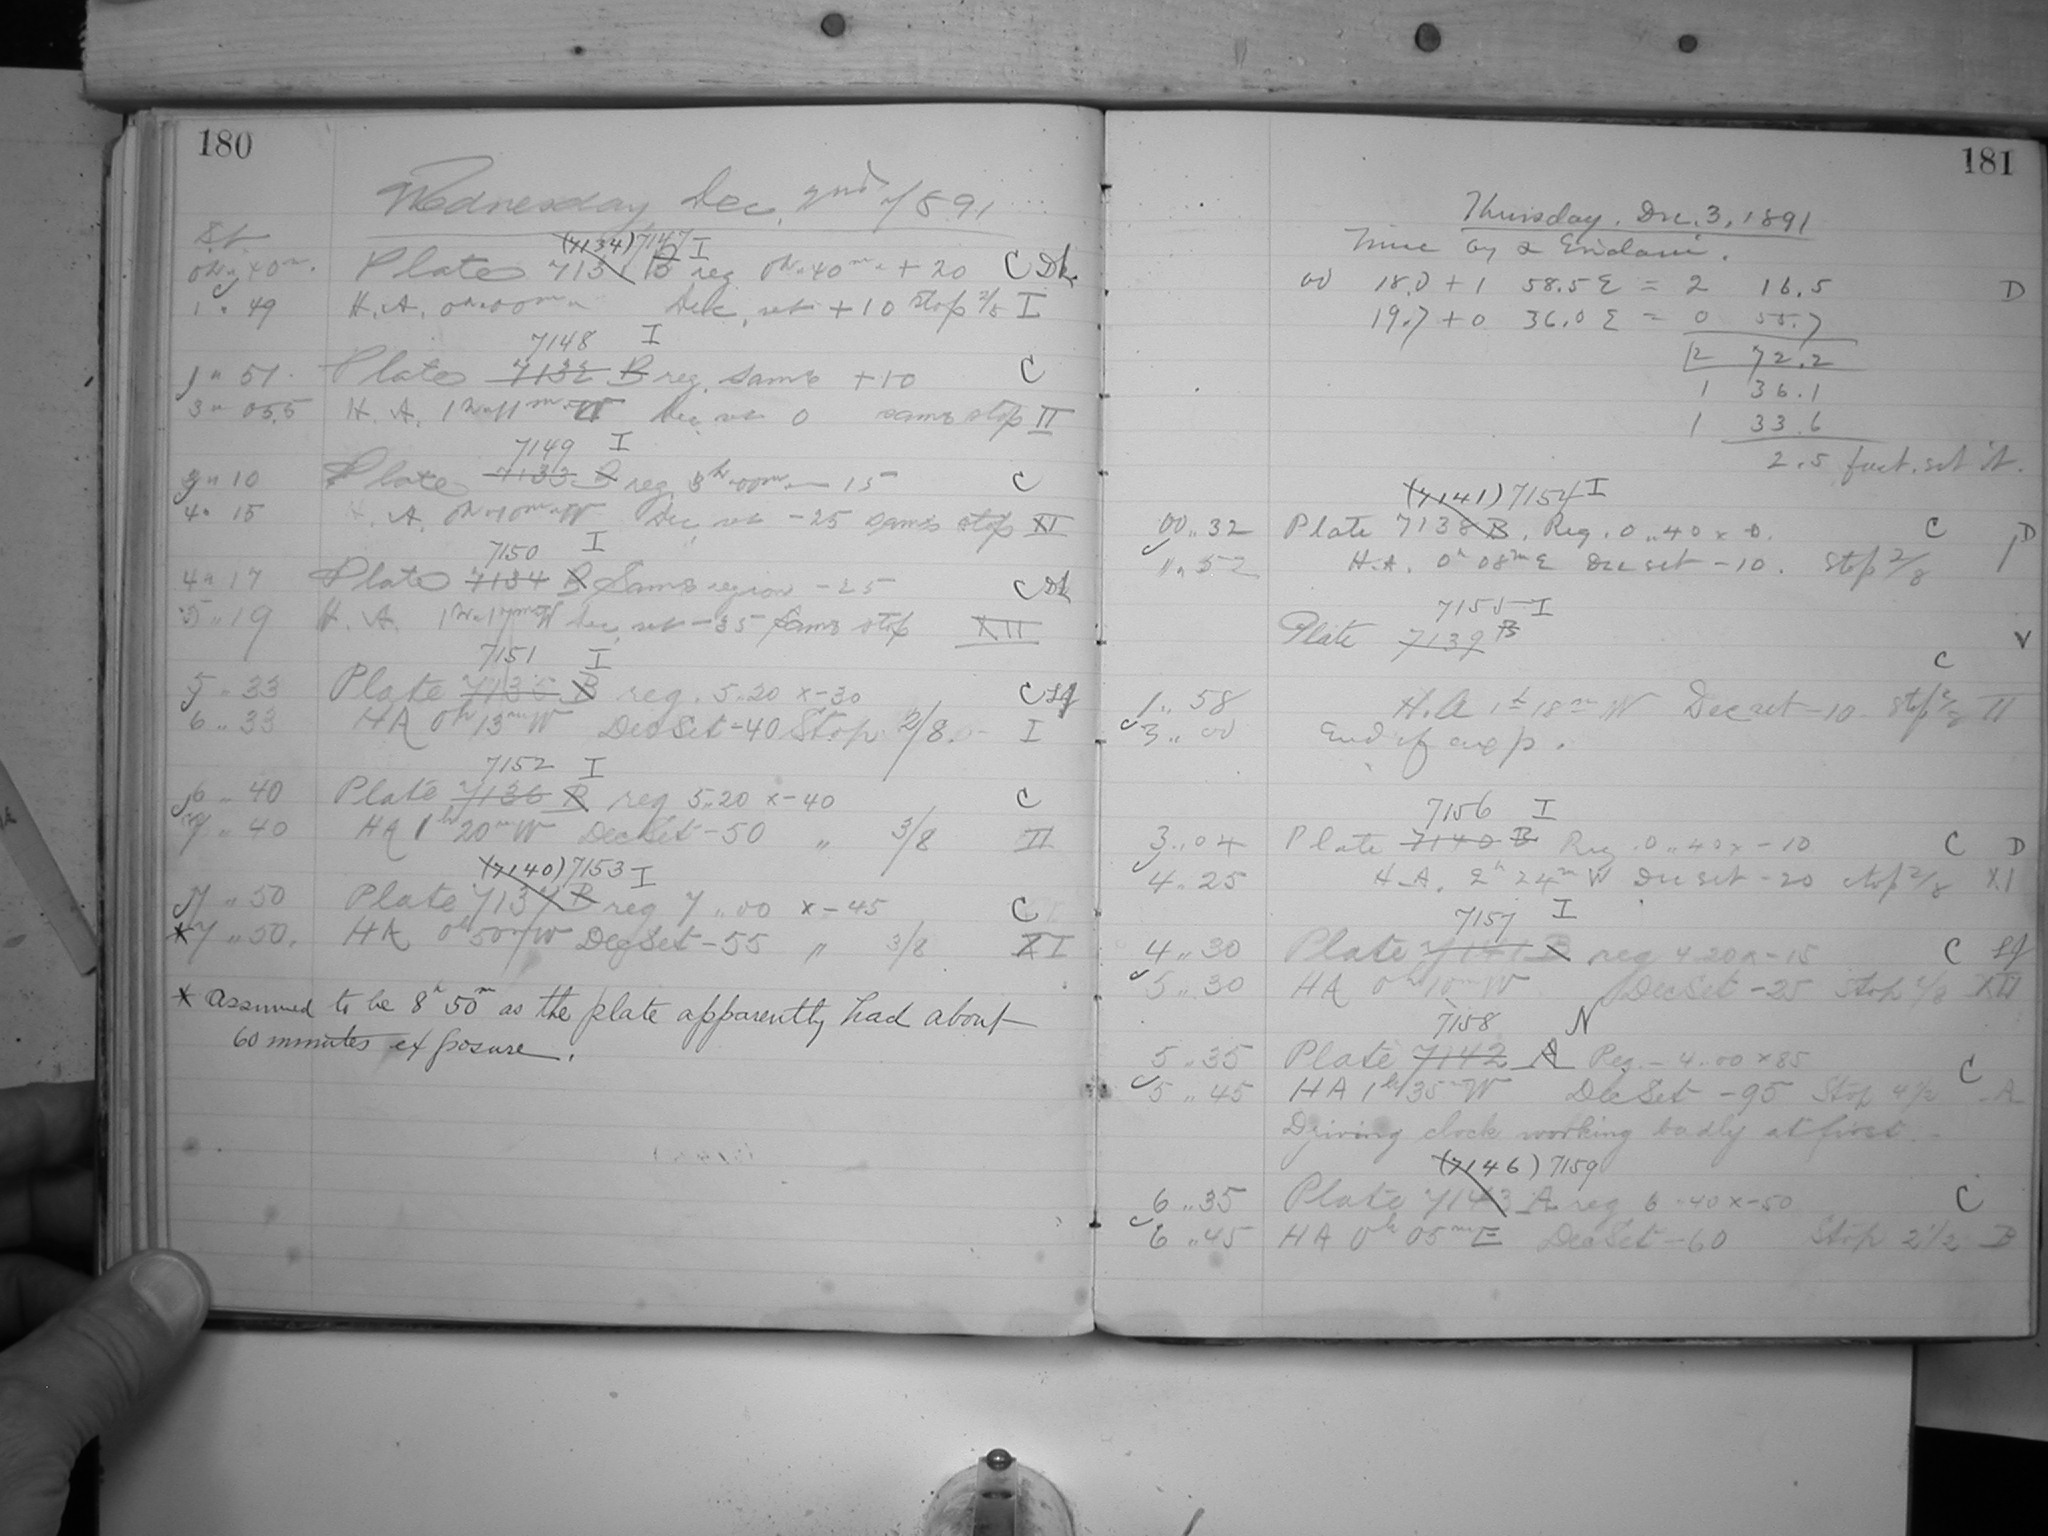 180
Wednesday Dec. 2nd 1891
S.t.
(7134) 7147 I
0h 40m. Plate 7131 B reg 0h 40m + 20 C Dk
1 " 49 H.A. 0h 00m Dec. set +10 Stop 2/8 I
7148 I
1 " 51 Plate 7132 B reg. same +10 C
3 " 05.5 H.A. 1h 11m W Dec. set 0 same stop II
7149 I
3 " 10 Plate 7133 B reg. 3h 00m - 15 C
4 " 15 H.A. 0h 10m W Dec. set -25 same stop XI
7150 I
4 " 17 Plate 7134 B Same region -25 C Dk
5 " 19 H.A. 1h 17m W Dec. set -35 Same stop XII
7151 I
5 " 33 Plate 7135 B reg. 5.20 x -30 C
6 " 33 HA 0h 13m W Dec Set -40 Stop 2/8. I
7152 I
6 " 40 Plate 7136 B reg 5.20 x -40 C
7 " 40 HA 1h 20m W Dec Set -50 " 3/8 II
(7140) 7153 I
7 " 50 Plate 7137 B reg 7 " 00 x -45 C
x 7 " 50. HA 0h 50m W Dec Set -55 " 3/8 XI
x Assumed to be 8h 50m as the plate apparently had about
60 minutes exposure.
181
Thursday. Dec. 3, 1891
Time by α Eridani.
00 18.0 + 1 58.5 E = 2 16.5 D
19.7 + 0 36.0 E = 0 55.7
2 72.2
1 36.1
1 33.6
2.5 fast. set it.
(7141) 7154 I
00 " 32 Plate 7138 B. Reg. 0 " 40 x 0. C D
1 " 52 H.A. 0h 08m E Dec set -10. Stop 2/8 I
7155 I
Plate 7139 B V
C
1 " 58 H.A 1h 18m W Dec set -10. Stop 2/8 II
3 " 00 End of exp.
7156 I
3 " 04 Plate 7140 B Reg. 0 " 40 x -10 C D
4 " 25 H.A. 2h 24m W Dec set -20 stop 2/8 XI
7157 I
4 " 30 Plate 7141 B reg 4.20 x -15 C
5 " 30 HA 0h 10m W Dec Set -25 Stop 2/8 XII
7158 N
5 " 35 Plate 7142 A Reg. - 4 " 00 x 85 C
5 " 45 HA 1h 35m W Dec Set -95 Stop A
Driving clock working badly at first.
(7146) 7159
6 " 35 Plate 7143 A reg 6 " 40 x -50 C
6 " 45 HA 0h 05m E Dec Set -60 Stop 2 1/2 B